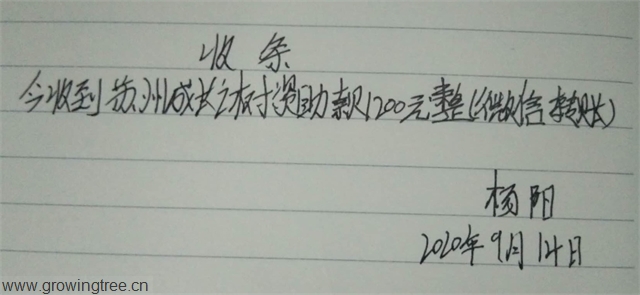 收条
今收到苏州成长之树资助款1200元整(微信转账)
杨阳
2020年9月14日
www.growingtree.cn